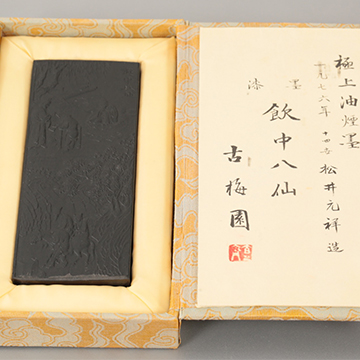 極上油煙墨
一九七六年 十四世 松井元祥造
漆墨
飲中八仙
古梅園